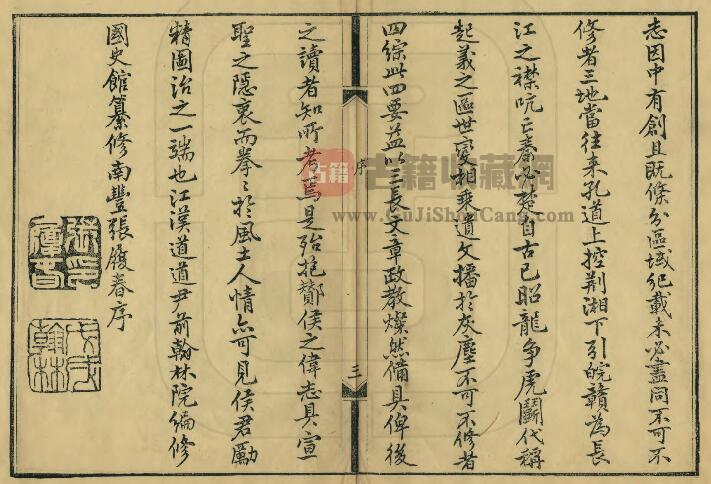 志因中有創且既條分區域紀載未必盡同不可不
修者三地當往來孔道上控荆湘下引皖贛為長
江之襟吭亡秦必楚自古已昭龍爭虎鬭代稱
起義之區世變相乘遺文播於灰塵不可不修者
四綜此四要益以三長文章政教燦然備具俾後
序
三
之讀者知所考焉是殆抱鄭侯之偉志具宣
聖之隱衷而拳々於風土人情亦可見侯君勵
精圖治之一端也江漢道道尹前翰林院編修
國史館纂修南豐張履春序
戊戌翰林
古籍收藏網
www.GuJiShouCang.com